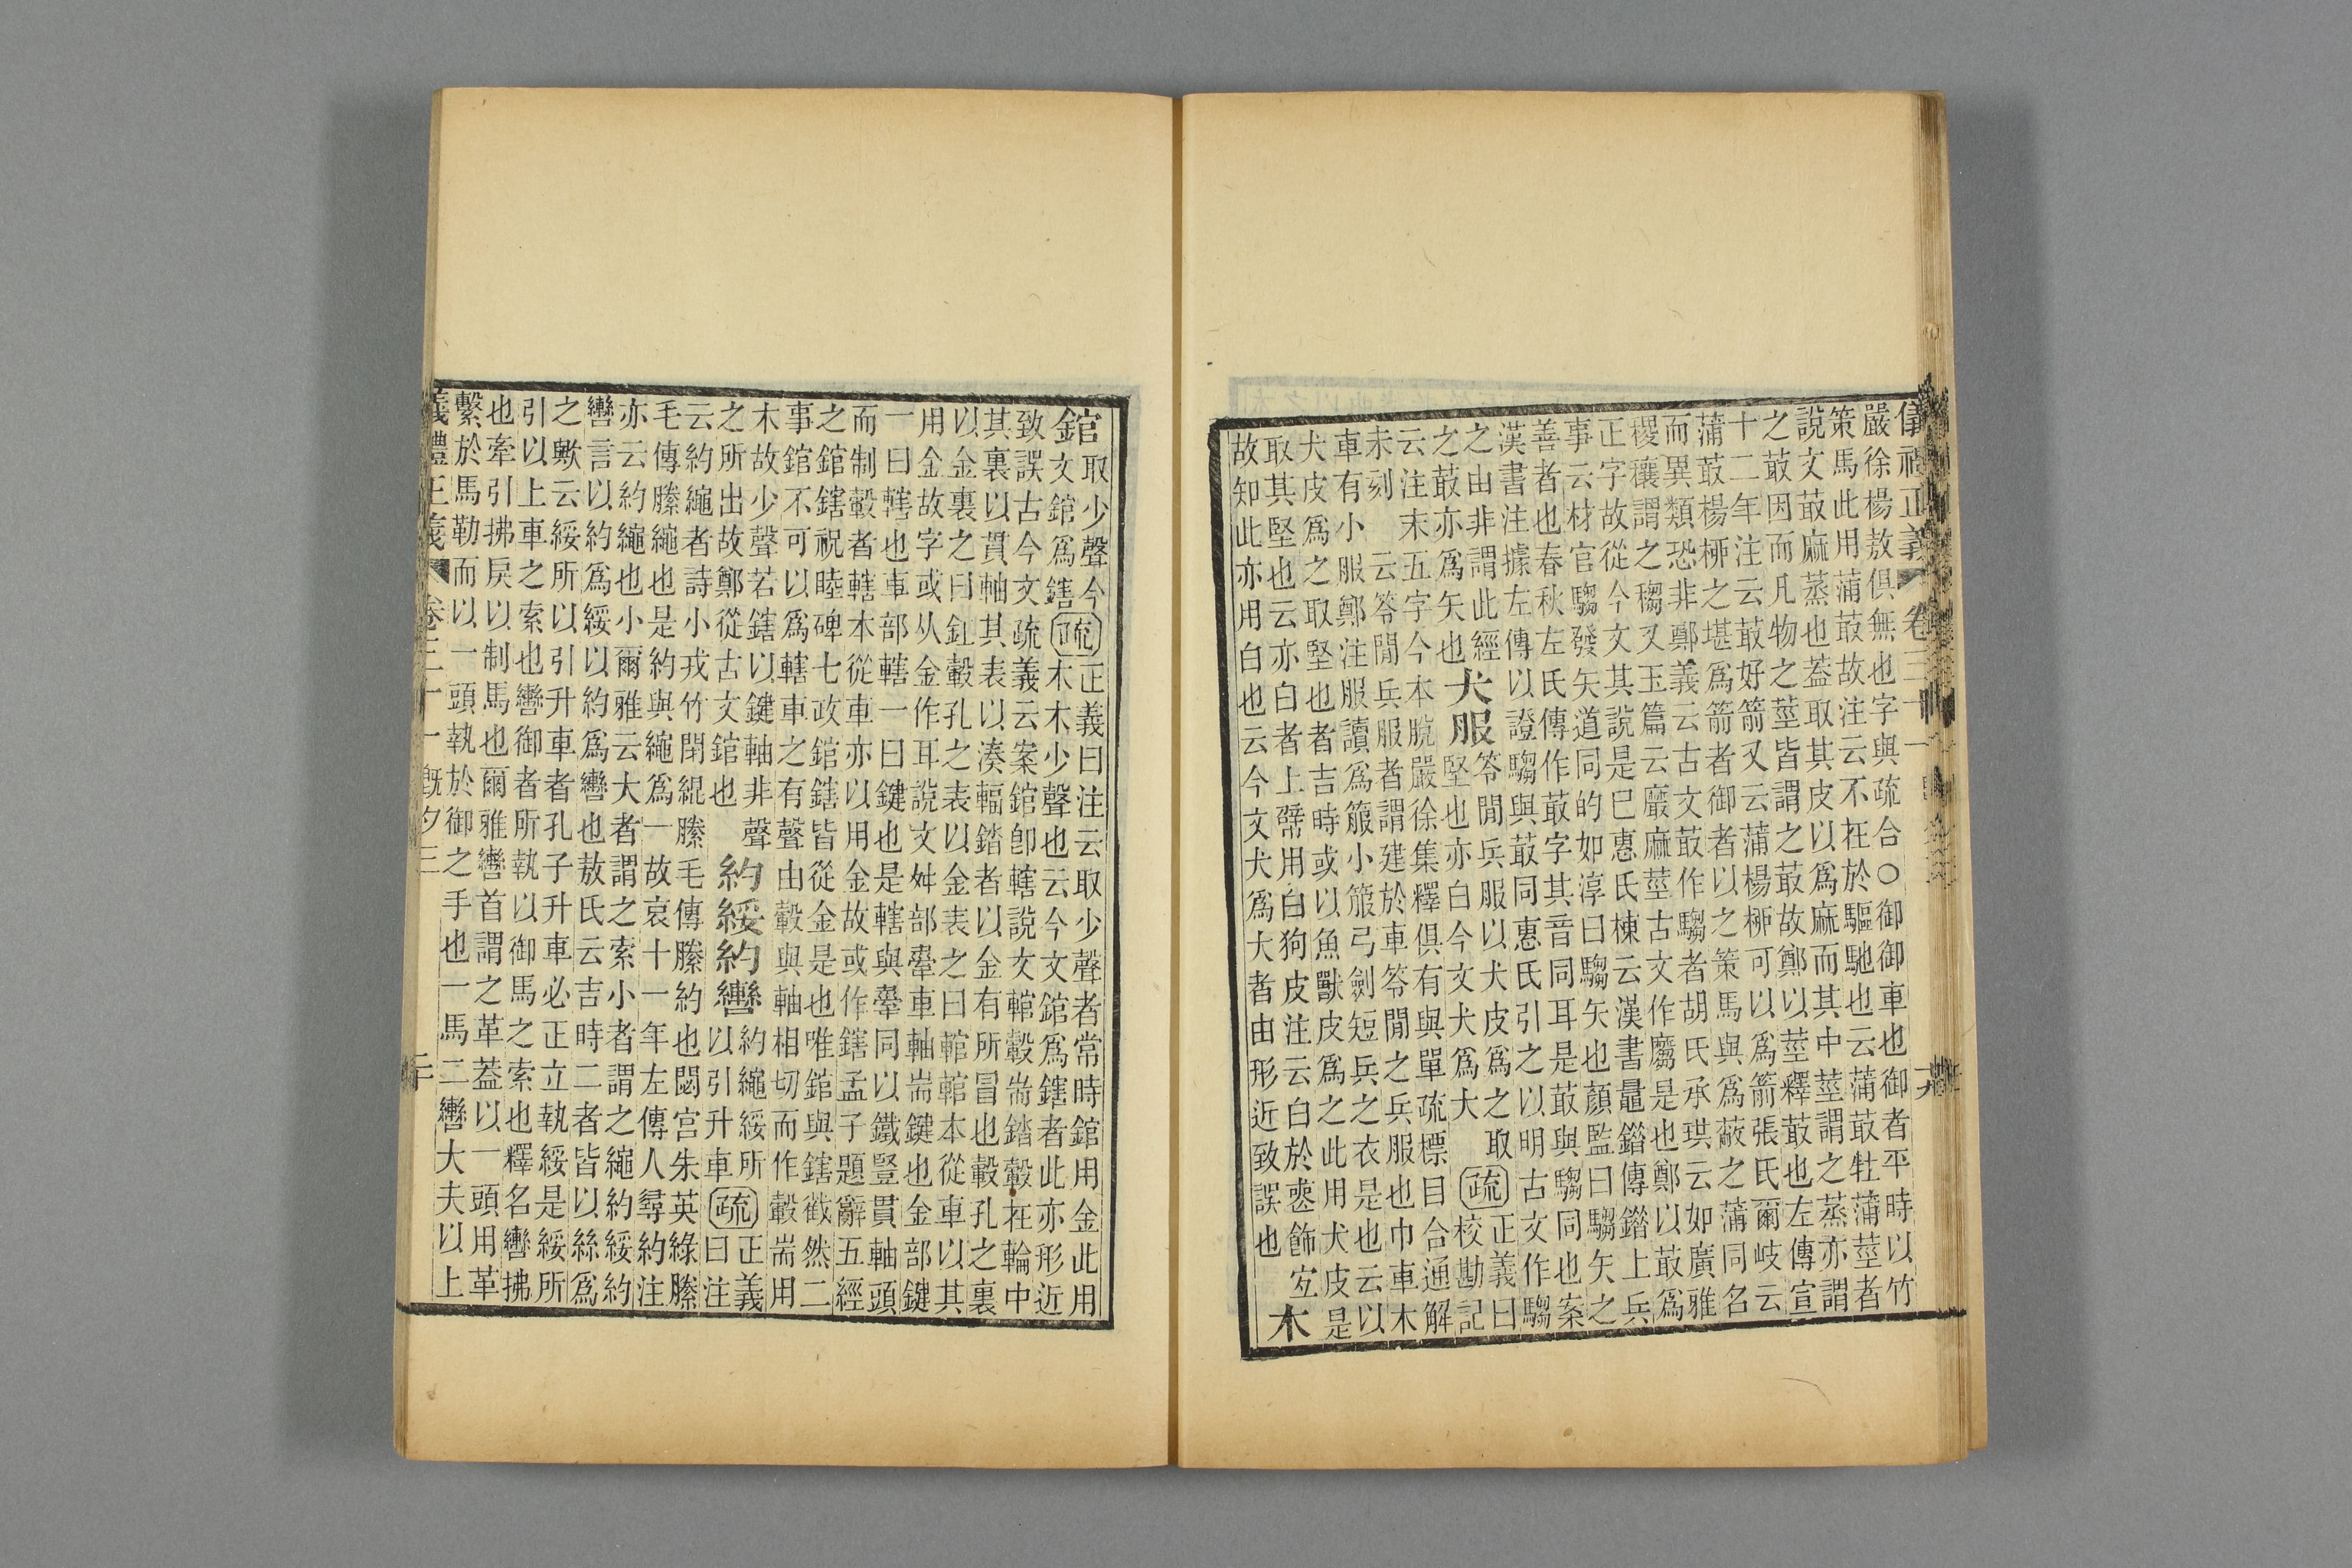 嚴徐楊敖俱無也字與疏合○御御車也御者平時以竹
策馬此用蒲菆故注云不在於驅馳也云蒲菆牡蒲莖者
說文菆麻蒸也葢取其皮以爲麻而其中莖謂之蒸亦謂
之菆因而凡物之莖皆謂之菆故鄭以莖釋菆也左傳宣
十二年注云菆好箭又云蒲楊桺可以爲箭張氏爾岐云
蒲菆楊桺之堪爲箭者御者以之策馬與爲蔽之蒲同名
而異類恐非鄭義云古文菆作騶者胡氏承珙云如廣雅
稷穰謂之䅳又玉篇云黀麻莖古文作黀是也鄭以菆爲
正字故從今文其說是巳惠氏棟云漢書鼂錯傳錯上兵
事云材官騶發矢道同的如淳曰騶矢也顏監曰騶矢之
善者也春秋左氏傳作菆字其音同耳是菆與騶同也案
漢書注據左傳以證騶與菆同惠氏引之以明古文作騶
之由非謂此經
之菆亦爲矢也
犬服
笭閒兵服以犬皮爲之取
堅也亦白今文犬爲大
疏
正義曰
校勘記
云注末五字今本脫嚴徐集釋俱有與單疏標目合通解
未刻 云笭閒兵服者謂建於車笭閒之兵服也巾車木
車有小服鄭注服讀爲箙小箙弓劍短兵之衣是也云以
犬皮爲之取堅也者吉時或以魚獸皮爲之此用犬皮是
取其堅也云亦白者上幦用白狗皮注云白於喪飾宐
故知此亦用白也云今文犬爲大者由形近致誤也
木
錧
取少聲今
文錧爲鎋
疏
正義曰注云取少聲者常時錧用金此用
木木少聲也云今文錧爲鎋者此亦形近
致誤古今文疏義云案錧卽轄說文輨轂耑錔轂在輪中
其裏以貫軸其表以湊輻錔者以金有所冒也轂孔之裏
以金裏之曰釭轂孔之表以金表之曰輨輨本從車以其
用金故字或从金作耳說文舛部舝車軸耑鍵也金部鍵
一曰轄也車部轄一曰鍵也是轄與舝同以鐵豎貫軸頭
而制轂者轄本從車亦以用金故或作鎋孟子題辭五經
之錧鎋祝睦碑七政錧鎋皆從金是也唯錧與鎋截然二
事錧不可以爲轄車之有聲由轂與軸相切而作轂耑用
木故少聲若鎋以鍵軸非聲
之所出故鄭從古文錧也
約綏約轡
約繩綏所
以引升車
疏
正義
曰注
云約繩者詩小戎竹閉緄縢毛傳縢約也閟宮朱英綠縢
毛傳縢繩也是約與繩爲一故哀十一年左傳人尋約注
亦云約繩也小爾雅云大者謂之索小者謂之繩約綏約
轡言以約爲綏以約爲轡也敖氏云吉時二者皆以絲爲
之歟云綏所以引升車者孔子升車必正立執綏是綏所
引以上車之索也轡御者所執以御馬之索也釋名轡拂
也牽引拂戾以制馬也爾雅轡首謂之革葢以一頭用革
繫於馬勒而以一頭執於御之手也一馬二轡大夫以上